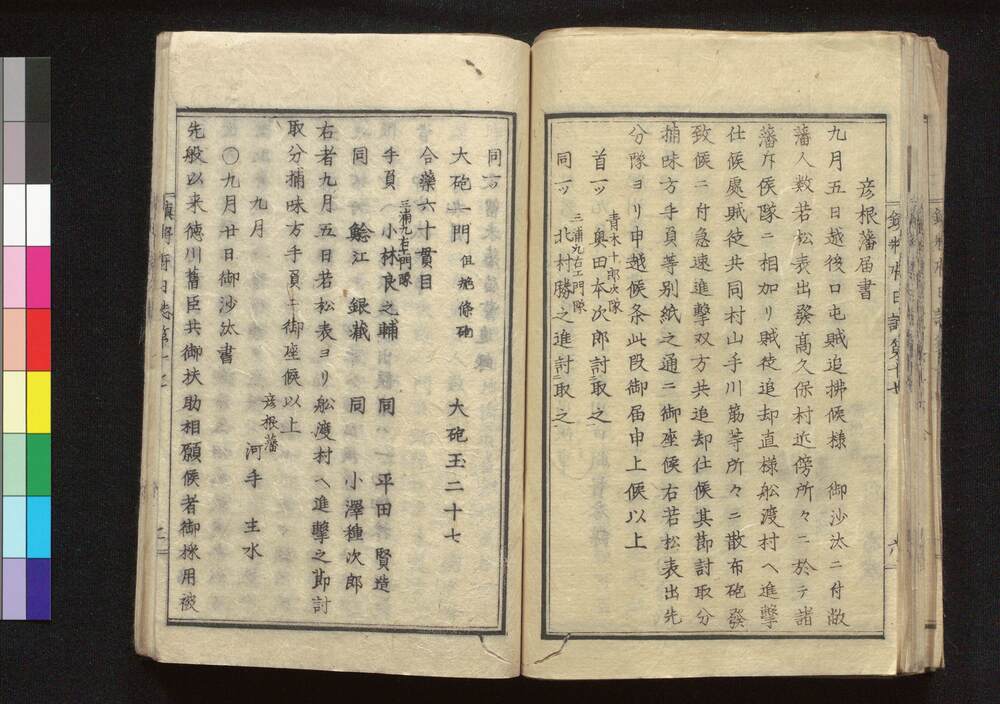 彦根藩届書
九月五日越後口屯賊追拂候様　御沙汰ニ付敝
藩人数若松表出發髙久保村近傍所々ニ於テ諸
藩斥候隊ニ相加リ賊徒追却直様舩渡村ヘ進擊
仕候處賊徒共同村山手川筋等所々ニ散布砲發
致候ニ付急速進擊双方共追却仕候其節討取分
捕味方手負等別紙之通ニ御座候右若松表出先
分隊ヨリ申越候条此段御届申上候以上
首一ッ　青木十郎次隊　奥田本次郎討取之
同一ッ　三浦九右エ門隊　北村勝之進討取之
同一ッ
大砲一門　但施條砲　大砲玉二十七
合藥六十貫目
手負　三浦九右エ門隊　小林良之輔　同　平田賢造
同　鯰江　銀藏　同　小澤種次郎
右者九月五日若松表ヨリ舩渡村ヘ進擊之節討
取分捕味方手負ニ御座候以上
九月　彦根藩　河手　主水
〇九月廿日御沙汰書
先般以来徳川舊臣共御扶助相願候者御採用被
鎮将府日誌第十
六